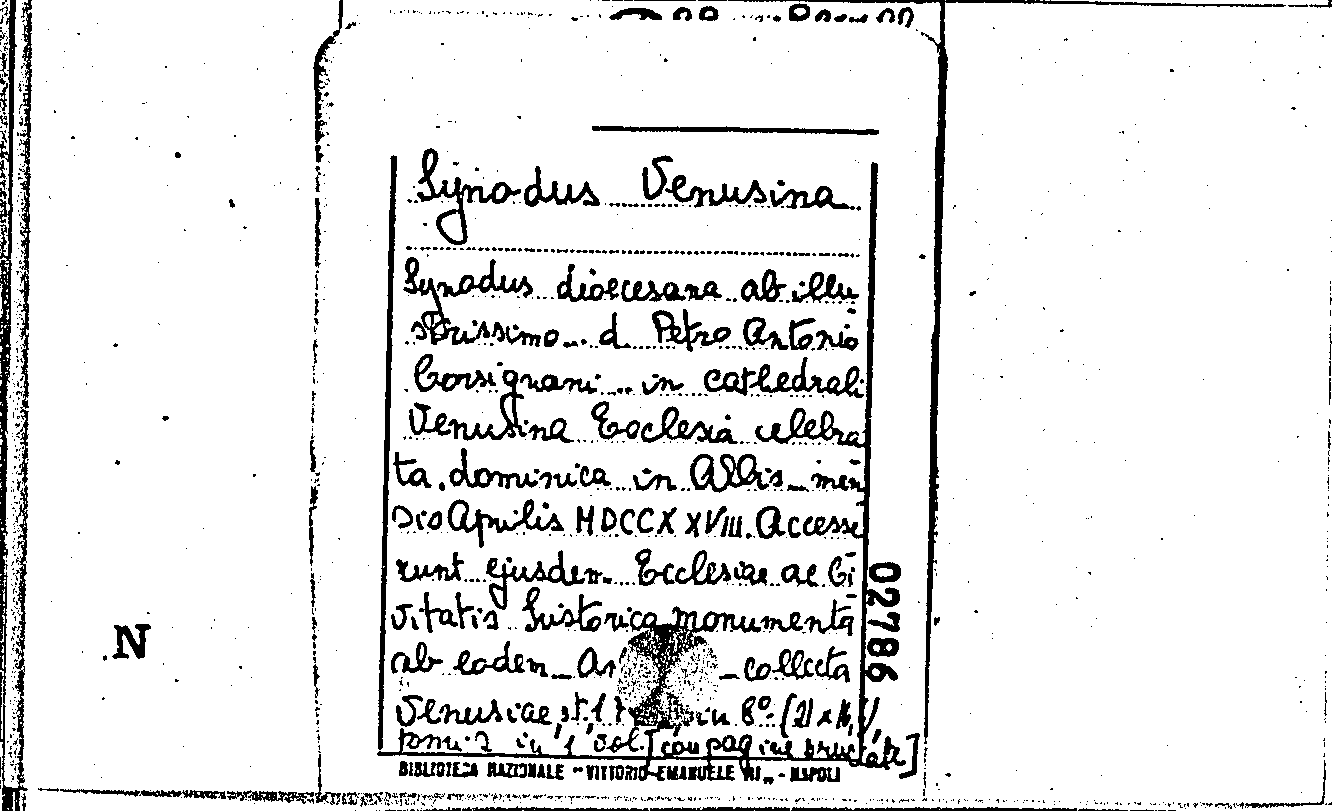 Synodus Venusina
Synodus dioecesana ab illu
strissimo d Petro Antonio
Corsignani in Cathedrali
Venusina Ecclesia celebra
ta dominica in Albis men
sis Aprilis MDCCXXVIII. Accesse
runt ejusdem Ecclesiae ac Ci
vitatis historica monumenta
ab eodem collecta
Venusiae, st. in 8º (21 x
tomi 2 in 1 vol. [con pagine bruciate]
BIBLIOTECA NAZIONALE "VITTORIO EMANUELE III" - NAPOLI
02786
N